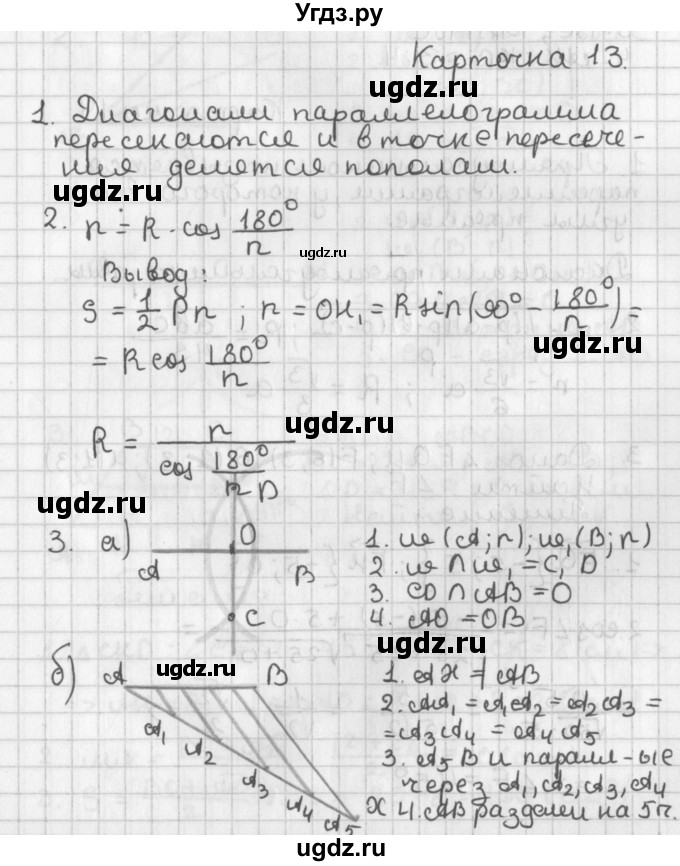 Угдз.ру
Карточка 13.
ugdz.ru
1. Диагонали параллелограмма
пересекаются и в точке пересече-
ния делятся пополам.
ugdz.ru
2. r = R · cos 180°/n
ugdz.ru
Вывод:
S = 1/2 Pr ; r = OH₁ = R sin(90° - 180°/n) =
ugdz.ru
= R cos 180°/n
ugdz.ru
R = r / cos 180°/n
ugdz.ru
3. а) A O B D C
1. ω(A; r); ω₁(B; r)
2. ω ∩ ω₁ = C, D
3. CD ∩ AB = O
4. AO = OB
ugdz.ru
ugdz.ru
б) A B
ugdz.ru
A₁ A₂ A₃ A₄ A₅ X
1. AX ∦ AB
2. AA₁ = A₁A₂ = A₂A₃ =
= A₃A₄ = A₄A₅
3. A₅B и паралл-ые
через A₁, A₂, A₃, A₄
4. AB разделен на 5 ч.
ugdz.ru